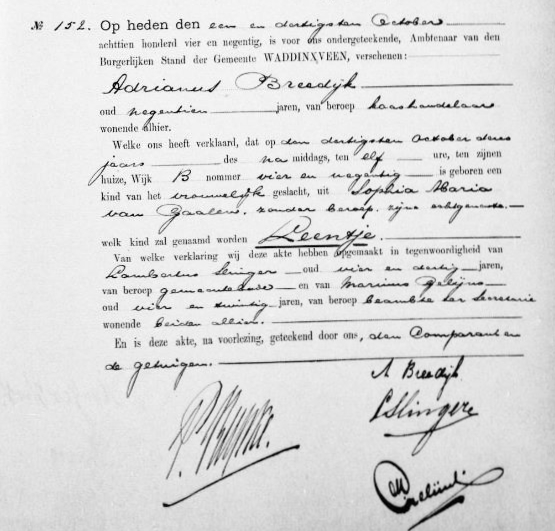 № 152. Op heden den een en dertigsten October
achttien honderd vier en negentig, is voor ons ondergeteekende, Ambtenaar van den
Burgerlijken Stand der Gemeente WADDINXVEEN, verschenen:
Adrianus Breedijk
oud negentien jaren, van beroep kaashandelaar
wonende alhier.
Welke ons heeft verklaard, dat op den dertigsten October dezes
jaars des na middags, ten elf ure, ten zijnen
huize, Wijk B nommer vier en negentig is geboren een
kind van het vrouwelijk geslacht, uit Sophia Maria
van Gaalen, zonder beroep, zijne echtgenoote.
welk kind zal genaamd worden Leentje.
Van welke verklaring wij deze akte hebben opgemaakt in tegenwoordigheid van
Lambertus Slinger oud vier en dertig jaren,
van beroep gemeentebode en van Marinus
oud vier en twintig jaren, van beroep beambte ter Secretarie
wonende beiden alhier.
En is deze akte, na voorlezing, geteekend door ons, den Comparant en
de getuigen.
A Breedijk
LSlinger